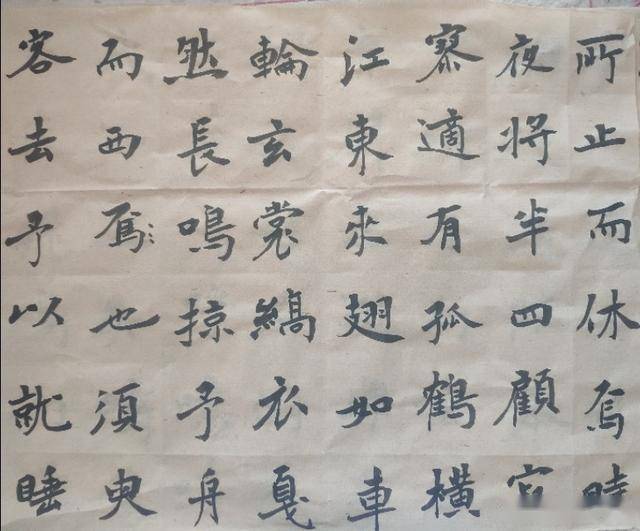 所止而休焉時
夜将半四顧寂
寥適有孤鶴横
江東来翅如車
輪玄裳縞衣戛
然長鳴掠予舟
而西焉也須臾
客去予以就睡